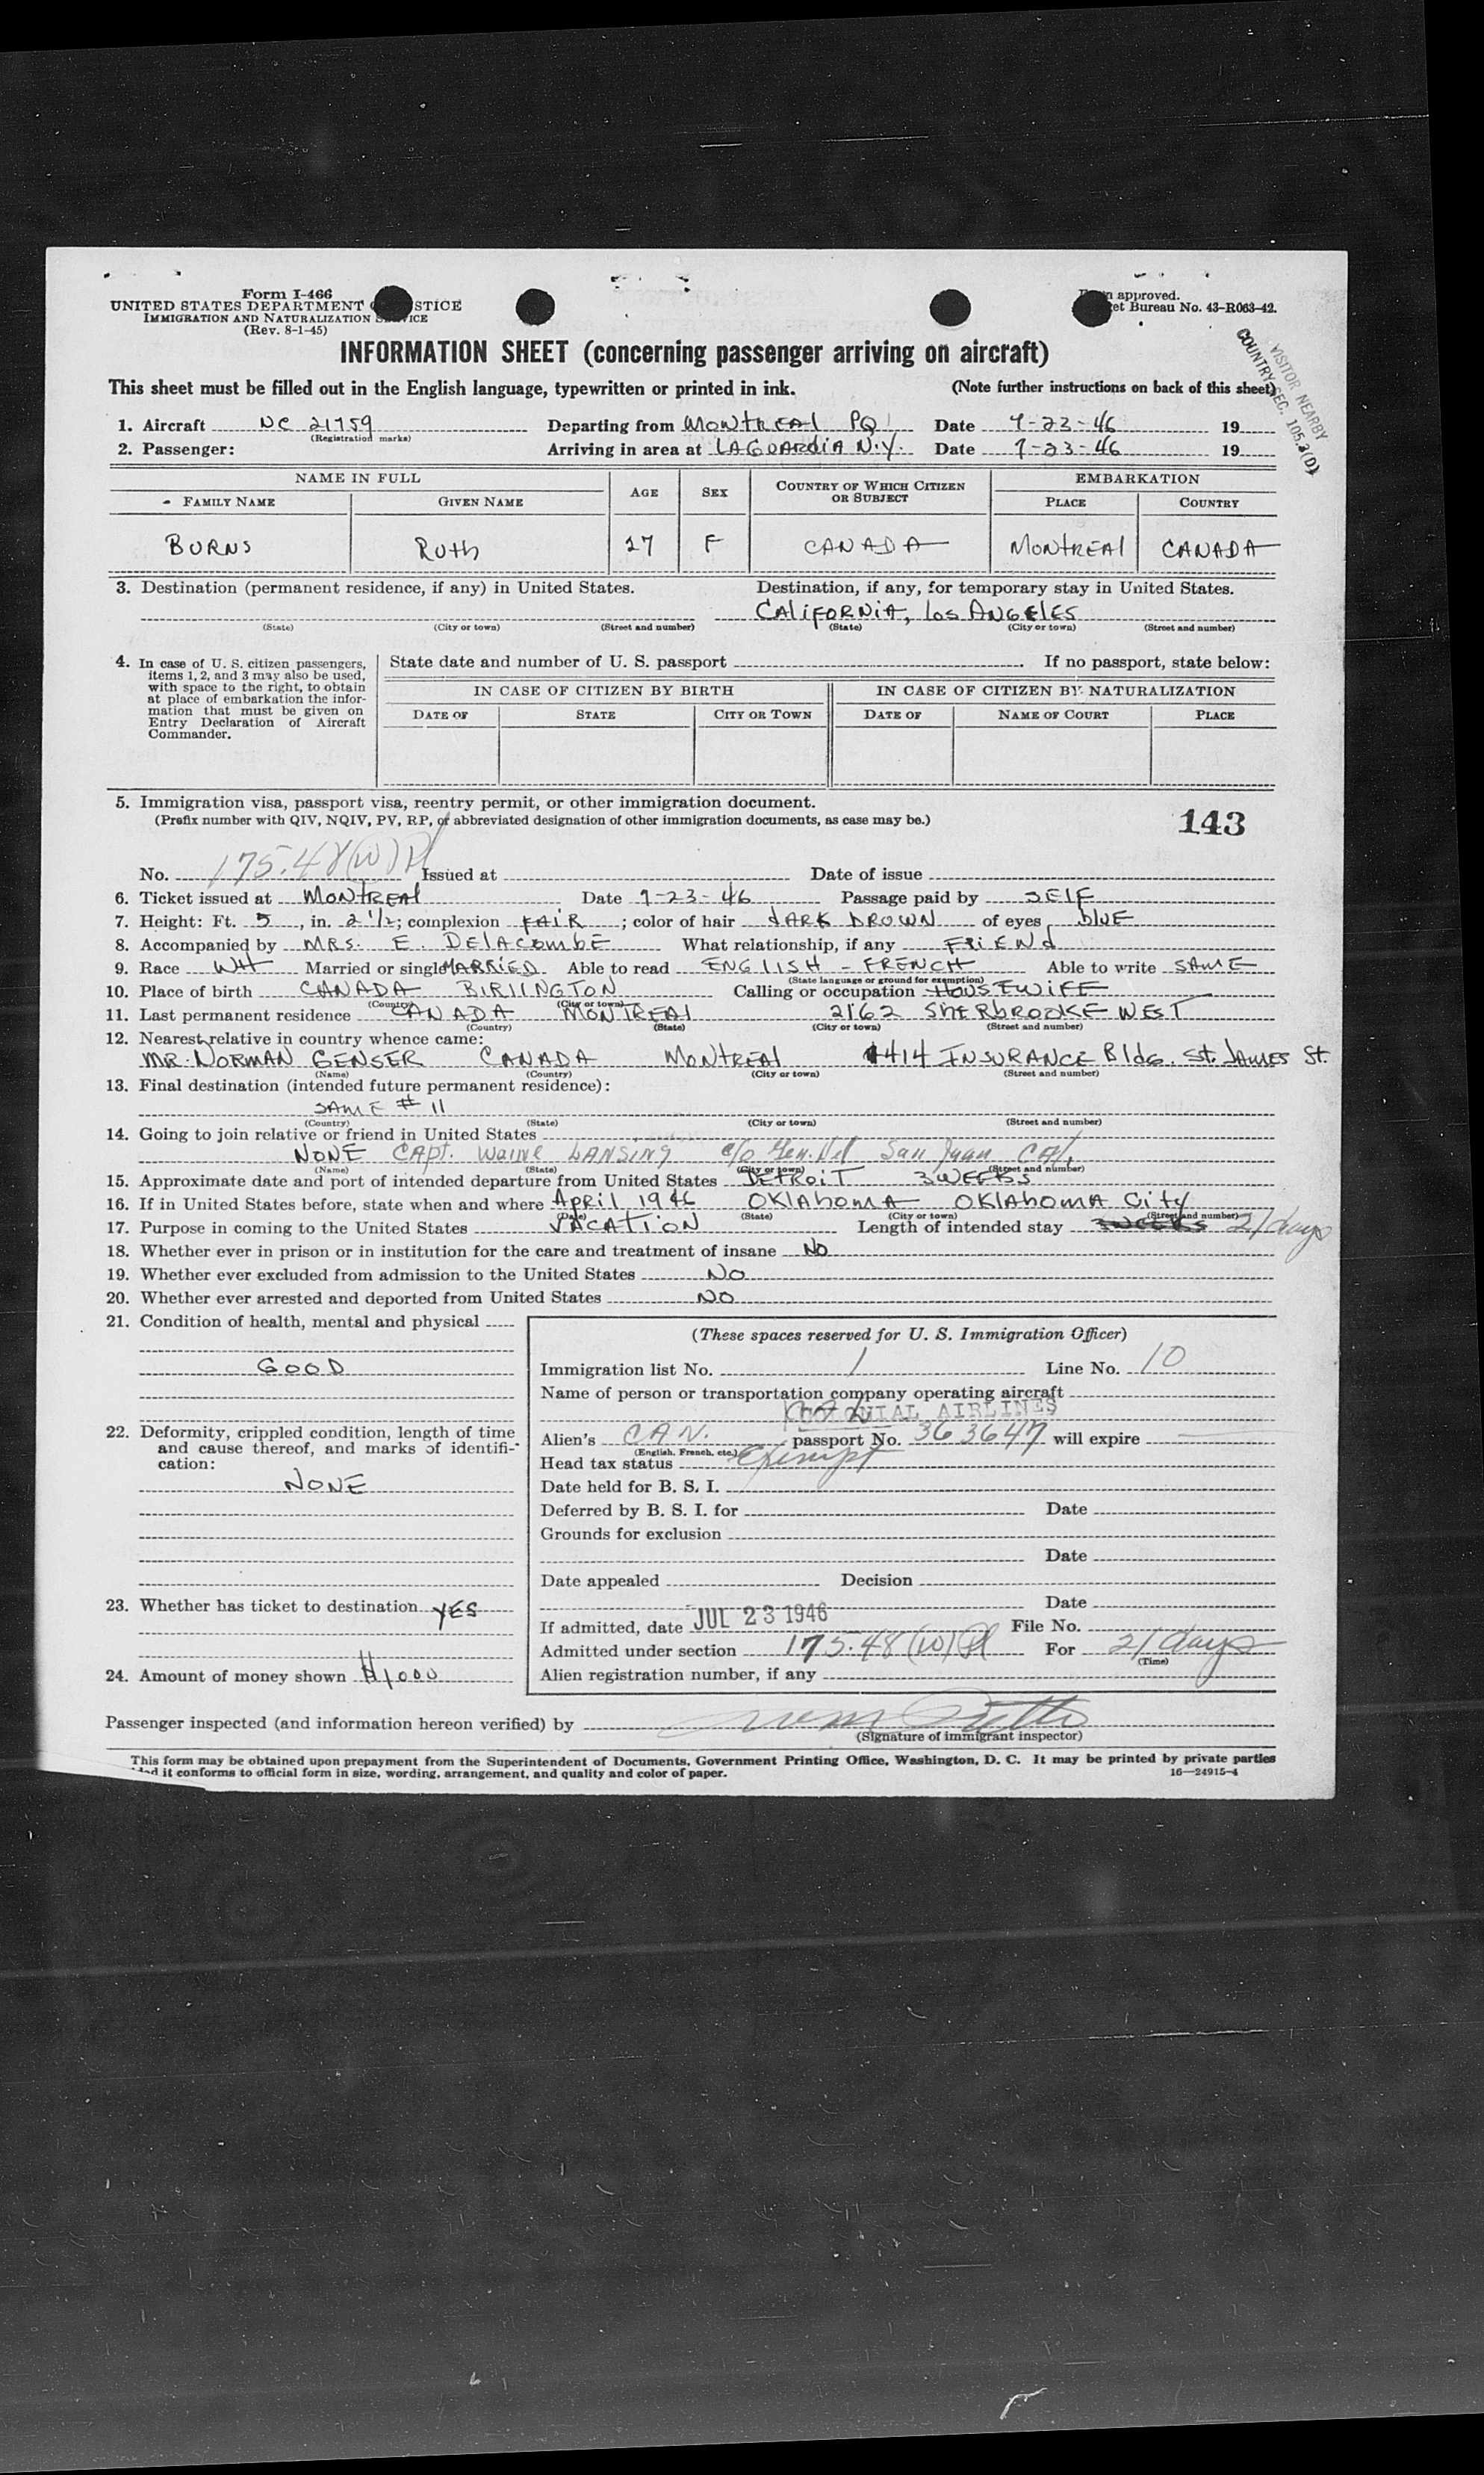 Form I-466
UNITED STATES DEPARTMENT STICE
IMMIGRATION AND NATURALIZATION ICE
(Rev. 8-1-45)
approved.
et Bureau No. 43-R063-42.
VISITOR NEARBY
COUNTRY SEC. 105.3(D)
INFORMATION SHEET (concerning passenger arriving on aircraft)
This sheet must be filled out in the English language, typewritten or printed in ink. (Note further instructions on back of this sheet)
1. Aircraft NC 21759 Departing from MONTREAL PQ Date 7-23-46 19
(Registration marks)
2. Passenger: Arriving in area at LAGUARDIA N.Y. Date 7-23-46 19
NAME IN FULL AGE SEX COUNTRY OF WHICH CITIZEN OR SUBJECT EMBARKATION
FAMILY NAME GIVEN NAME PLACE COUNTRY
BURNS RUTH 27 F CANADA MONTREAL CANADA
3. Destination (permanent residence, if any) in United States. Destination, if any, for temporary stay in United States.
CALIFORNIA, LOS ANGELES
(State) (City or town) (Street and number) (State) (City or town) (Street and number)
4. In case of U. S. citizen passengers, items 1, 2, and 3 may also be used, with space to the right, to obtain at place of embarkation the information that must be given on Entry Declaration of Aircraft Commander.
State date and number of U. S. passport If no passport, state below:
IN CASE OF CITIZEN BY BIRTH IN CASE OF CITIZEN BY NATURALIZATION
DATE OF STATE CITY OR TOWN DATE OF NAME OF COURT PLACE
5. Immigration visa, passport visa, reentry permit, or other immigration document.
(Prefix number with QIV, NQIV, PV, RP, or abbreviated designation of other immigration documents, as case may be.)
143
No. 175.48(W) Pl Issued at Date of issue
6. Ticket issued at MONTREAL Date 7-23-46 Passage paid by SELF
7. Height: Ft. 5, in. 2 1/2; complexion FAIR; color of hair DARK BROWN of eyes BLUE
8. Accompanied by MRS. E. DELACOMBE What relationship, if any FRIEND
9. Race WH Married or single MARRIED Able to read ENGLISH - FRENCH Able to write SAME
(State language or ground for exemption)
10. Place of birth CANADA BIRLINGTON Calling or occupation HOUSEWIFE
(Country) (City or town)
11. Last permanent residence CANADA MONTREAL 2162 SHERBROOKE WEST
(Country) (State) (City or town) (Street and number)
12. Nearest relative in country whence came:
MR. NORMAN GENSER CANADA MONTREAL 414 INSURANCE Bldg. St. JAMES St.
(Name) (Country) (City or town) (Street and number)
13. Final destination (intended future permanent residence):
SAME # 11
(Country) (State) (City or town) (Street and number)
14. Going to join relative or friend in United States
NONE Capt. Waine LANSING c/o Gen. Del San Juan CAL.
(Name) (State) (City or town) (Street and number)
15. Approximate date and port of intended departure from United States DETROIT 3 WEEKS
16. If in United States before, state when and where April 1946 OKLAHOMA OKLAHOMA City
(Date) (State) (City or town) (Street and number)
17. Purpose in coming to the United States VACATION Length of intended stay 3 WEEKS 21 days
18. Whether ever in prison or in institution for the care and treatment of insane NO
19. Whether ever excluded from admission to the United States NO
20. Whether ever arrested and deported from United States NO
21. Condition of health, mental and physical
GOOD
22. Deformity, crippled condition, length of time and cause thereof, and marks of identification:
NONE
23. Whether has ticket to destination YES
24. Amount of money shown $1000
(These spaces reserved for U. S. Immigration Officer)
Immigration list No. 1 Line No. 10
Name of person or transportation company operating aircraft
COLONIAL AIRLINES
Alien's CAN. passport No. 363647 will expire
(English, French, etc.)
Head tax status Exempt
Date held for B. S. I.
Deferred by B. S. I. for Date
Grounds for exclusion
Date
Date appealed Decision
Date
If admitted, date JUL 23 1946 File No.
Admitted under section 175.48(W) Pl For 21 days
(Time)
Alien registration number, if any
Passenger inspected (and information hereon verified) by
(Signature of immigrant inspector)
This form may be obtained upon prepayment from the Superintendent of Documents, Government Printing Office, Washington, D. C. It may be printed by private parties
it conforms to official form in size, wording, arrangement, and quality and color of paper.
16—24915-4